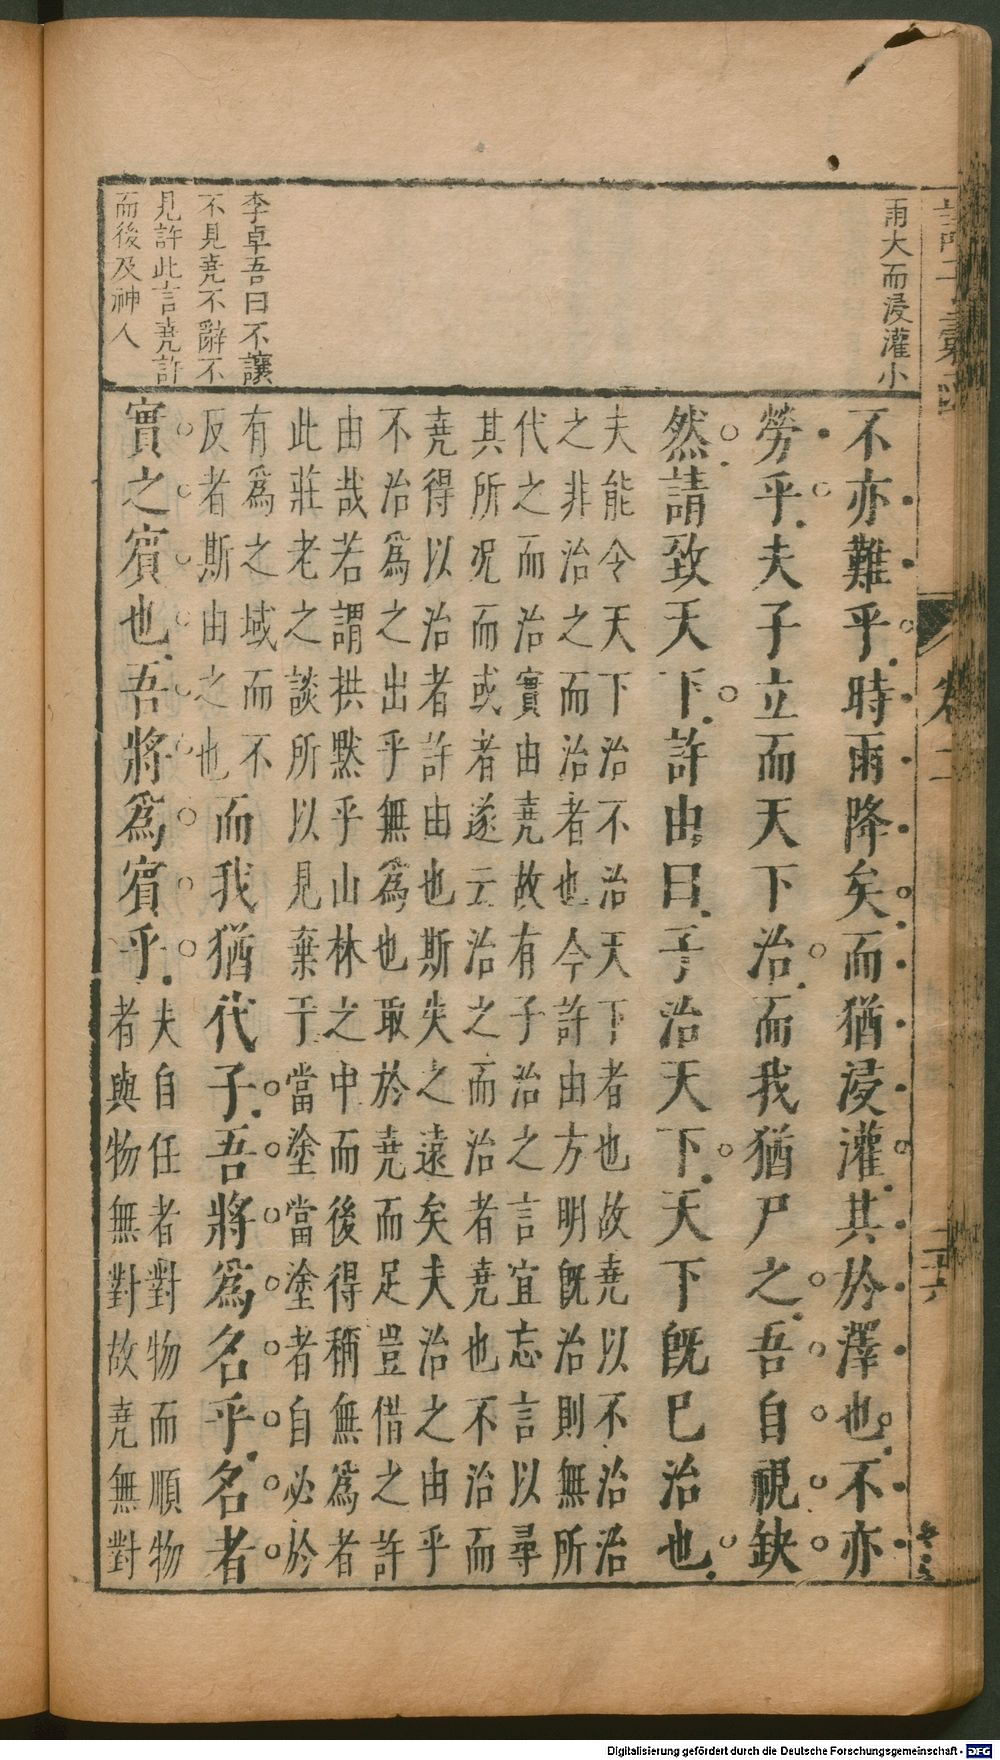 雨大而浸灌小
不亦難乎時雨降矣而猶浸灌其於澤也不亦
勞乎夫子立而天下治而我猶尸之吾自視缺
然請致天下許由曰子治天下天下旣已治也
夫能令天下治不治天下者也故堯以不治治
之非治之而治者也今許由方明旣治則無所
代之而治實由堯故有子治之言宜忘言以尋
其所况而或者遂云治之而治者堯也不治而
堯得以治者許由也斯失之遠矣夫治之由乎
不治爲之出乎無爲也取於堯而足豈借之許
由哉若謂拱黙乎山林之中而後得稱無爲者
此莊老之談所以見棄于當塗當塗者自必於
有爲之域而不
反者斯由之也
而我猶代子吾將爲名乎名者
實之賔也吾將爲賔乎
夫自任者對物而順物
者與物無對故堯無對
李卓吾曰不讓
不見堯不辭不
見許此言堯許
而後及神人
Digitalisierung gefördert durch die Deutsche Forschungsgemeinschaft - DFG